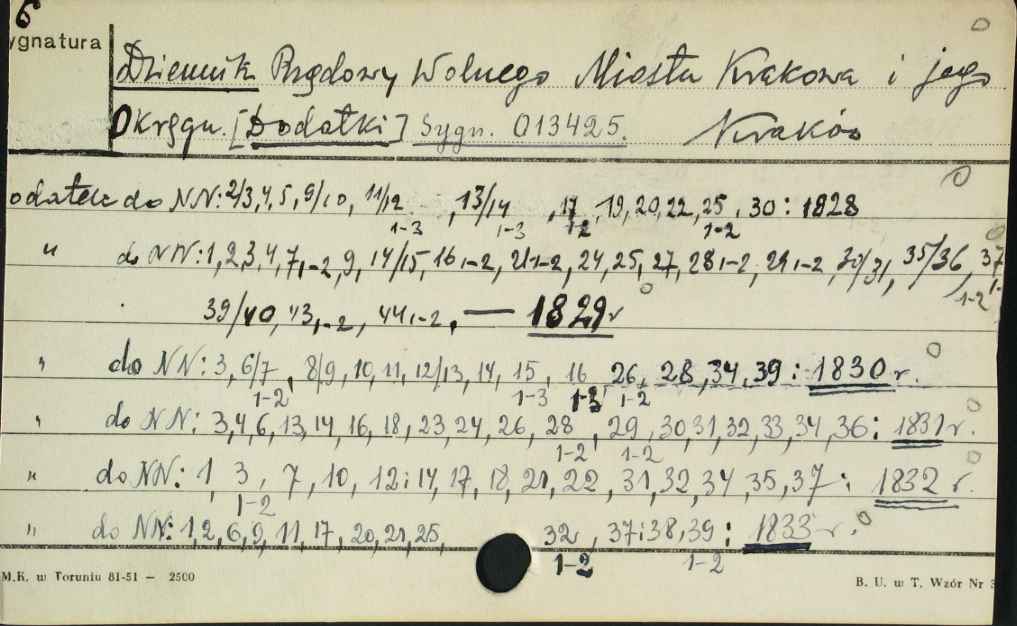 6
ygnatura
Dziennik Rządowy Wolnego Miasta Krakowa i jego
Okręgu. [Dodatki] Sygn. 013425. Kraków
odatek do NN: 2/3, 4, 5, 9/10, 11/12, 13/14, 17, 19, 20, 22, 25, 30: 1828
1-3 1-3 1-2 1-2
" do NN: 1, 2, 3, 4, 7, 1-2, 9, 14/15, 16 1-2, 21 1-2, 24, 25, 27, 28 1-2, 29 1-2, 30/31, 35/36, 37
1-2
39/40, 43, 1-2, 44 1-2, — 1829 r
" do NN: 3, 6/7, 8/9, 10, 11, 12/13, 14, 15, 16, 26, 28, 34, 39: 1830 r.
1-2 1-3 1-3 1-2
" do NN: 3, 4, 6, 13, 14, 16, 18, 23, 24, 26, 28, 29, 30, 31, 32, 33, 34, 36: 1831 r.
1-2 1-2
" do NN: 1, 3, 7, 10, 12 i 14, 17, 18, 21, 22, 31, 32, 34, 35, 37: 1832 r.
1-2
" do NN: 1, 2, 6, 9, 11, 17, 20, 21, 25, 32, 37 i 38, 39: 1833 r.
1-2 1-2
M.K. w Toruniu 81-51 — 2500 B. U. w T. Wzór Nr 3